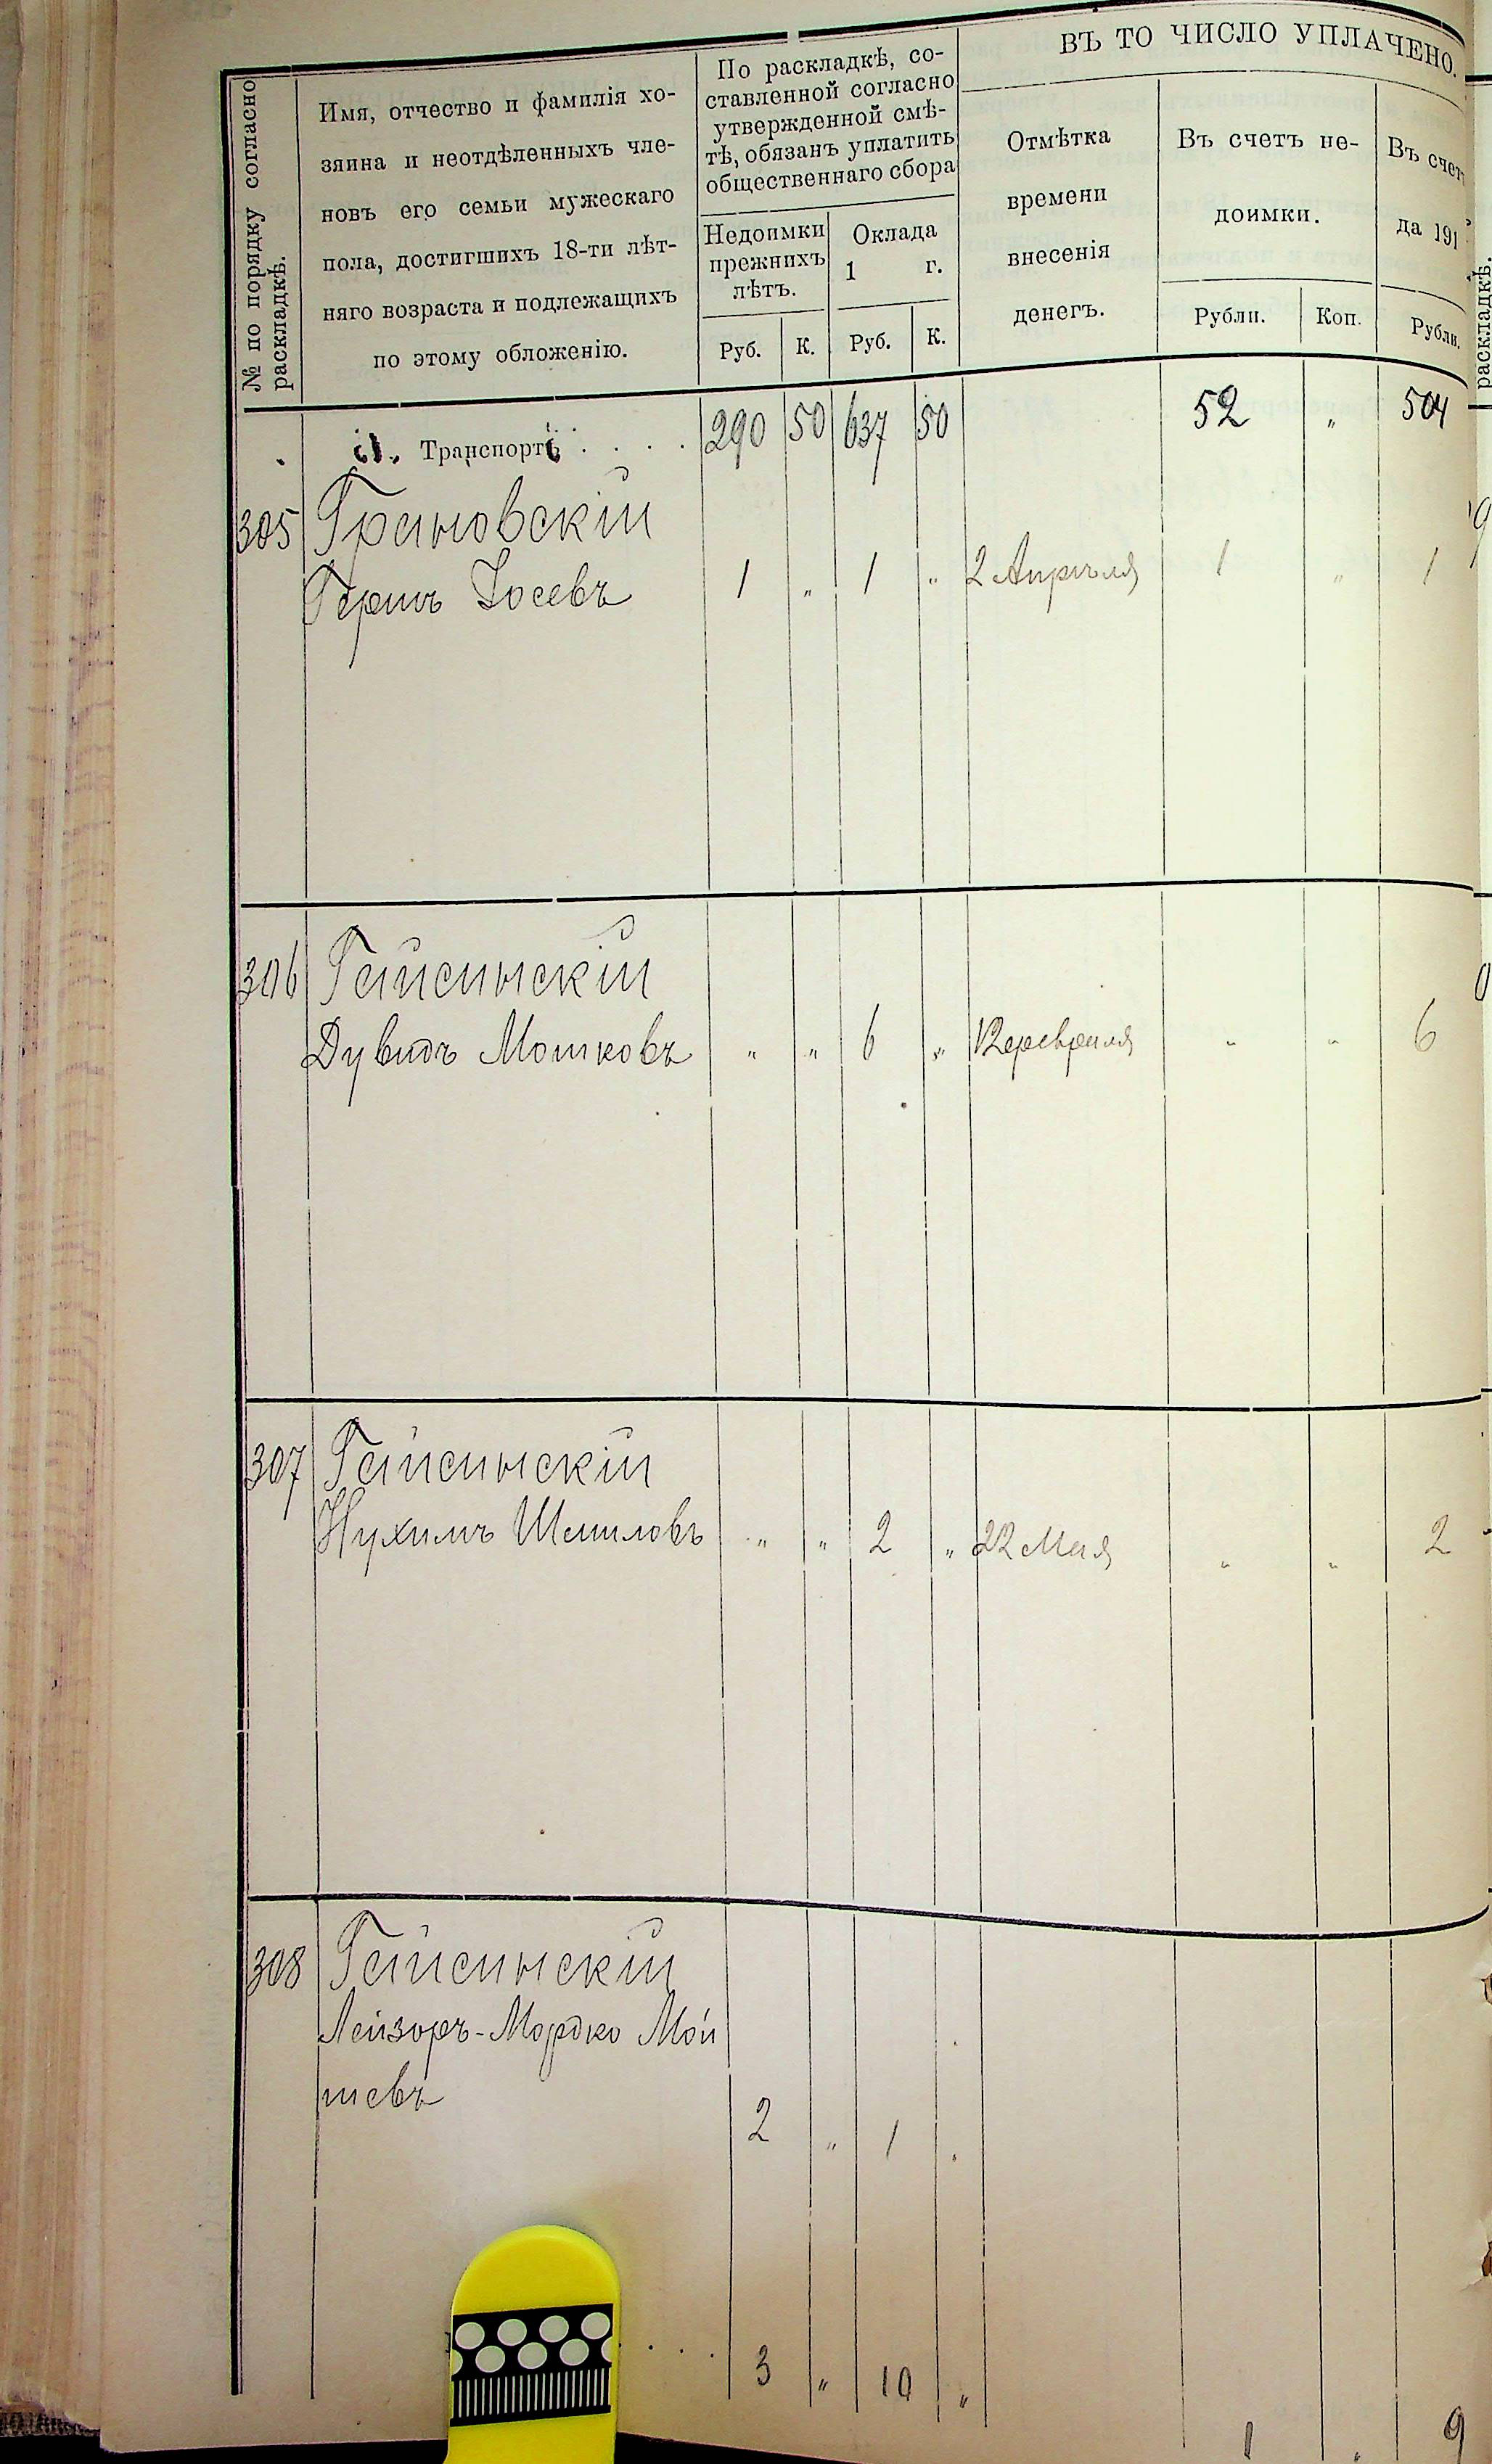 № по порядку согласно
раскладкѣ.
Имя, отчество и фамилія хо-
зяина и неотдѣленныхъ чле-
новъ его семьи мужескаго
пола, достигшихъ 18-ти лѣт-
няго возраста и подлежащихъ
по этому обложенію.
По раскладкѣ, со-
ставленной согласно
утвержденной смѣ-
тѣ, обязанъ уплатить
общественнаго сбора
Недоимки
прежнихъ
лѣтъ.
Оклада
1 г.
Руб. К. Руб. К.
ВЪ ТО ЧИСЛО УПЛАЧЕНО.
Отмѣтка
времени
внесенія
денегъ.
Въ счетъ не-
доимки.
Рубли. Коп.
Въ счет
да 191
Рубли.
раскладкѣ.
Транспортъ . . . . 290 50 637 50 52 " 504
305 Грановскій
Герша Іосевъ 1 " 1 " 2 Апрѣля 1 " 1
306 Гайсинскій
Дувидъ Мошковъ " " 6 " 12 февраля " " 6
307 Гайсинскій
Нухимъ Шмиловъ " " 2 " 22 Мая " " 2
308 Гайсинскій
Лейзоръ-Мордко Мой
шевъ
2 " 1 "
3 " 10 " 1 " 9